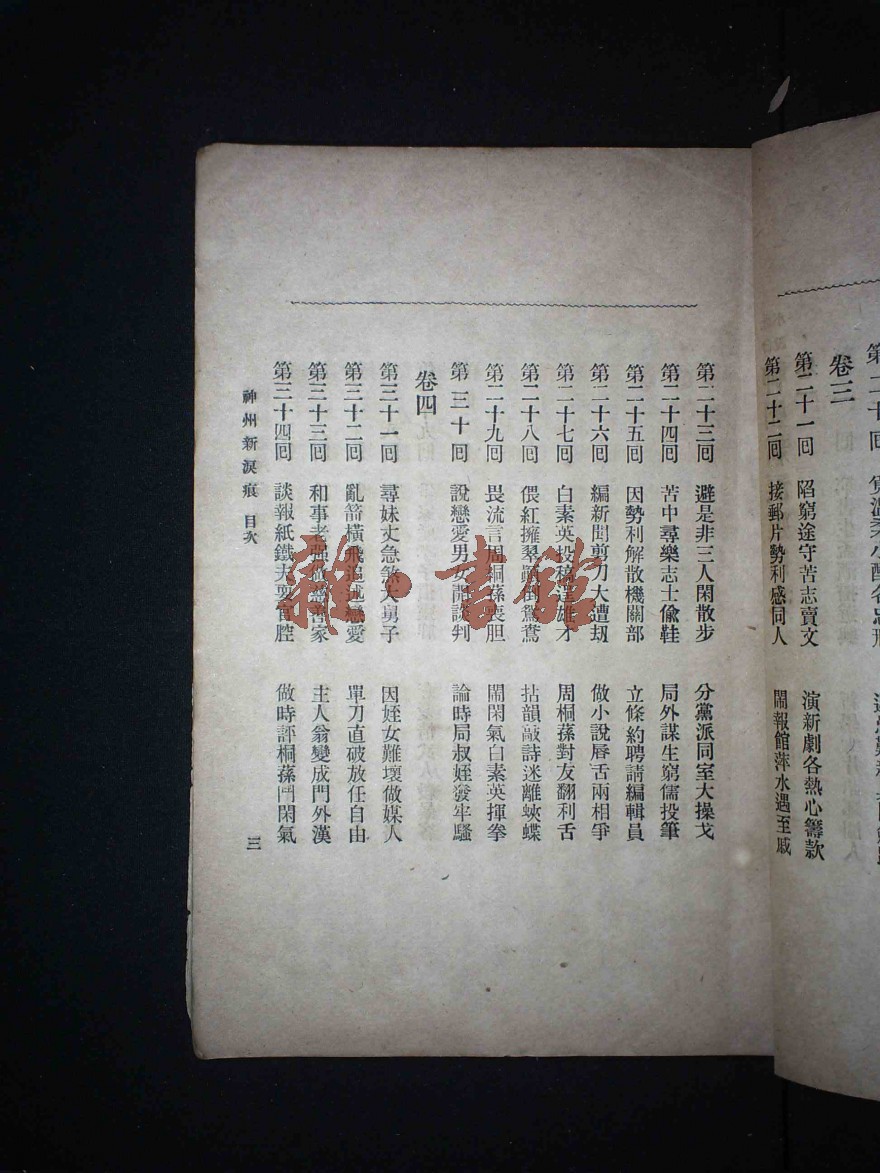 卷三
第二十一回 陷窮途守苦志賣文 演新劇各熱心籌款
第二十二回 接郵片勢利感同人 鬧報館萍水遇至戚
第二十三回 避是非三人閑散步 分黨派同室大操戈
第二十四回 苦中尋樂志士偸鞋 局外謀生窮儒投筆
第二十五回 因勢利解散機關部 立條約聘請編輯員
第二十六回 編新聞剪刀大遭刼 做小說唇舌兩相爭
第二十七回 白素英投稿 雄才 周桐蓀對友翻利舌
第二十八回 偎紅擁翠 倒鴛鴦 拈韻敲詩迷離蛺蝶
第二十九回 畏流言周桐蓀喪胆 鬧閑氣白素英揮拳
第三十回 說戀愛男女 談判 論時局叔姪發牢騷
卷四
第三十一回 尋妹丈急煞大舅子 因姪女難壞做媒人
第三十二回 亂箭橫飛 戀愛 單刀直破放任自由
第三十三回 和事老強 善家 主人翁變成門外漢
第三十四回 談報紙鐵夫 官腔 做時評桐蓀鬥閑氣
神州新淚痕 目次
三
雜·書館